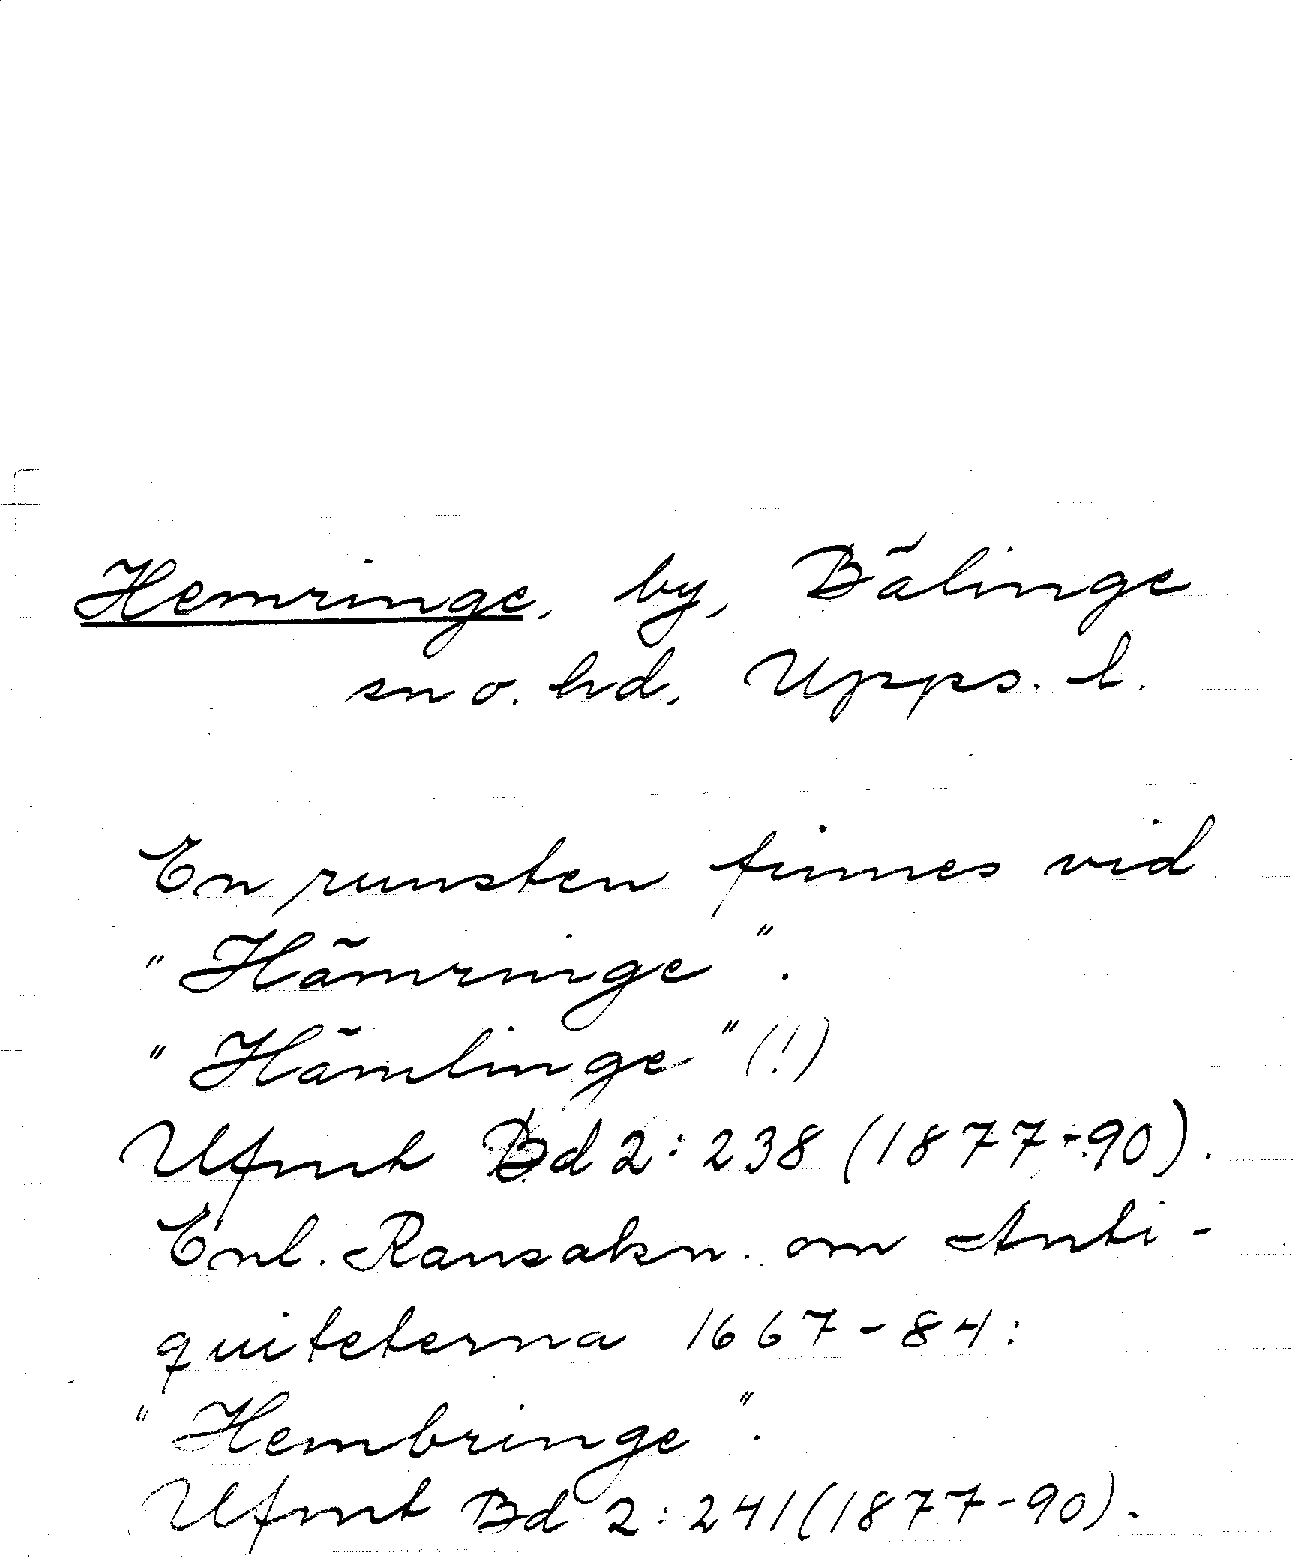 Hemringe, by, Bälinge
sn o. hd, Upps. l.
En runsten finnes vid
"Hämringe".
"Hämlinge" (!)
Ufmt Bd 2:238 (1877-90).
Enl. Ransakn. om Anti-
quiteterna 1667-84:
"Hembringe".
Ufmt Bd 2:241 (1877-90).